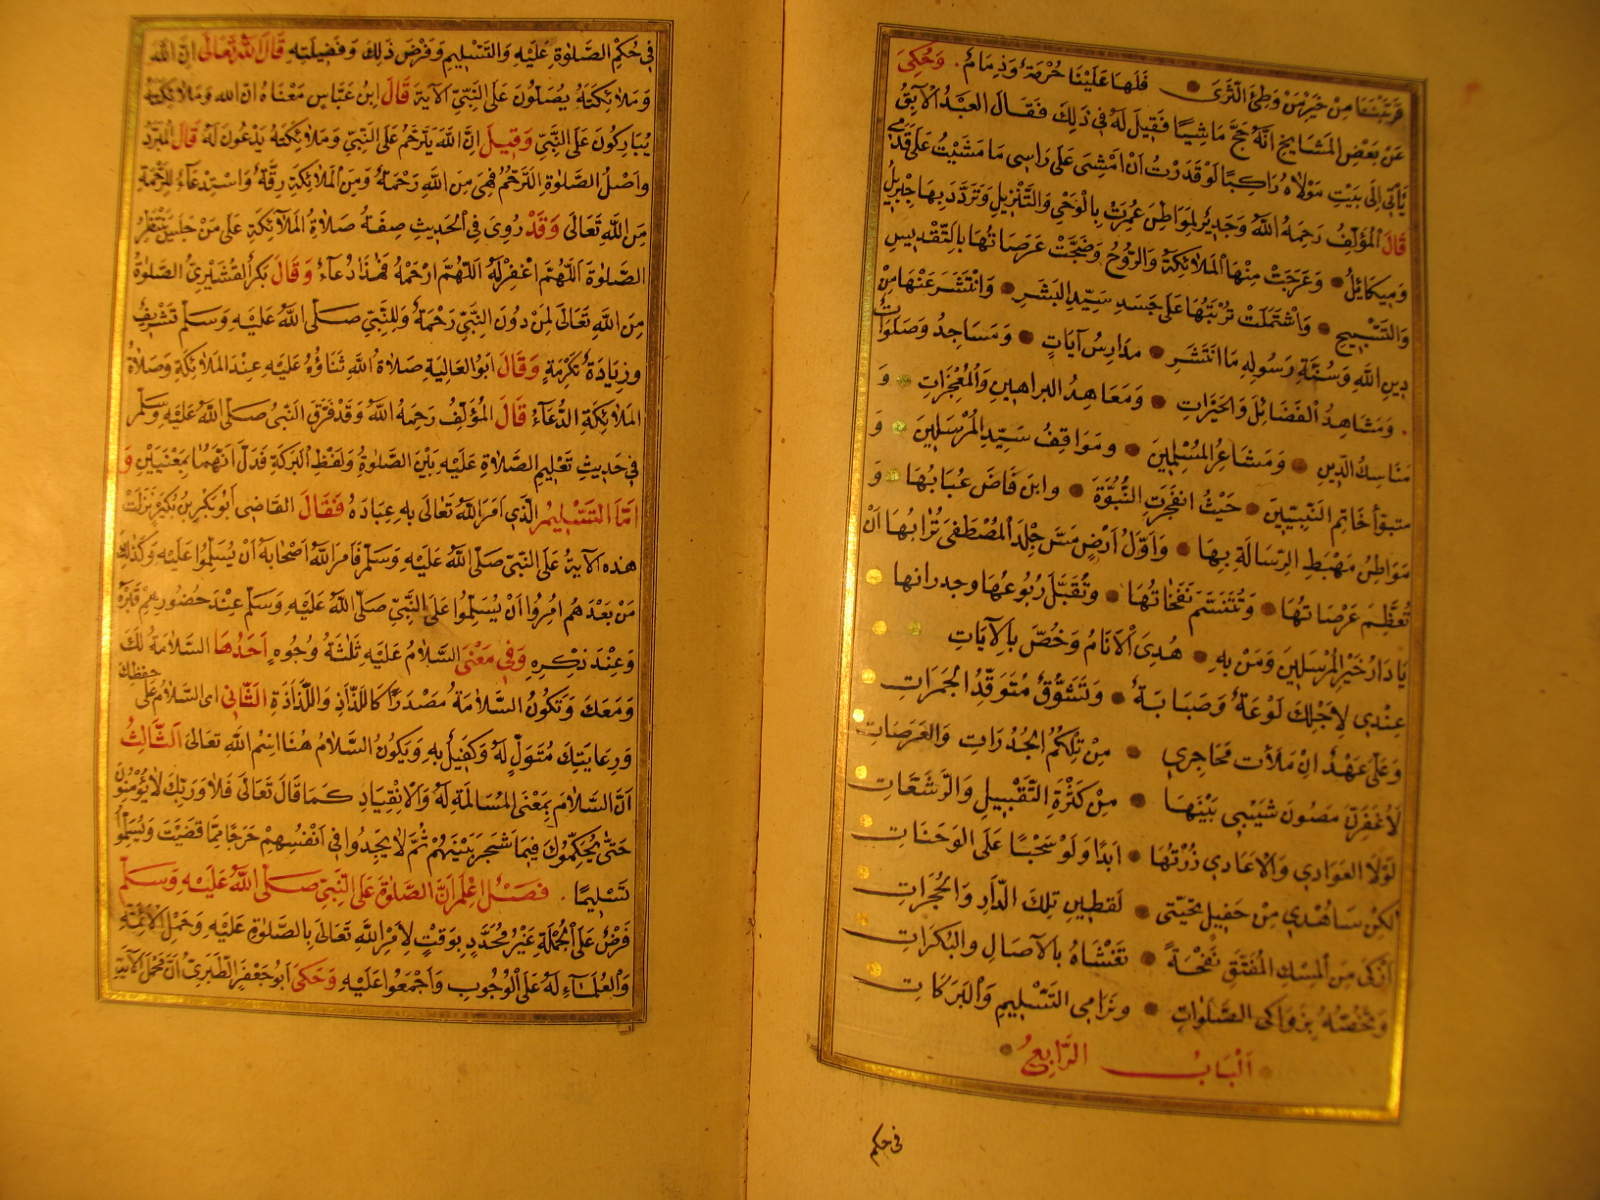 قَرَّبَتْنَا مِنْ خَيْرِ مَنْ وَطِئَ الثَّرَى فَلَهَا عَلَيْنَا حُرْمَةٌ وَذِمَامُ وَحُكِىَ
عَنْ بَعْضِ المَشَايِخِ اَنَّهُ حَجَّ مَاشِيًا فَقِيلَ لَهُ فِى ذلِكَ فَقَالَ العَبْدُ الآبِقُ
يَأْتِى اِلَى بَيْتِ مَوْلَاهُ رَاكِبًا لَوْ قَدَرْتُ اَنْ اَمْشِىَ عَلَى رَاسِى مَا مَشَيْتُ عَلَى قَدَمِى
قَالَ المُؤَلِّفُ رَحِمَهُ اللهُ وَجَدِيرٌ لِمَوَاطِنَ عُمِرَتْ بِالْوَحْىِ وَالتَّنْزِيلِ وَتَرَدَّدَ بِهَا جِبْرِيلُ
وَمِيكَائِيلُ وَعَرَجَتْ مِنْهَا المَلَائِكَةُ وَالرُّوحُ وَضَجَّتْ عَرَصَاتُهَا بِالتَّقْدِيسِ
وَالتَّسْبِيحِ وَاشْتَمَلَتْ تُرْبَتُهَا عَلَى جَسَدِ سَيِّدِ البَشَرِ وَانْتَشَرَ عَنْهَا مِنْ
دِينِ اللهِ وَسُنَّةِ رَسُولِهِ مَا انْتَشَرَ مَدَارِسُ آيَاتٍ وَمَسَاجِدُ وَصَلَوَاتٌ
وَمَشَاهِدُ الفَضَائِلِ وَالخَيْرَاتِ وَمَعَاهِدُ البَرَاهِينِ وَالمُعْجِزَاتِ وَ
مَنَاسِكُ الدِّينِ وَمَشَاعِرُ المُسْلِمِينَ وَمَوَاقِفُ سَيِّدِ المُرْسَلِينَ وَ
مُتَبَوَّأُ خَاتِمِ النَّبِيِّينَ حَيْثُ انْفَجَرَتِ النُّبُوَّةُ وَاينَ فَاضَ عُبَابُهَا وَ
مَوَاطِنُ مَهْبَطِ الرِّسَالَةِ بِهَا وَاَوَّلُ اَرْضٍ مَسَّ جِلْدَ المُصْطَفَى تُرَابُهَا اَنْ
تُعَظَّمَ عَرَصَاتُهَا وَتُتَنَسَّمَ نَفَحَاتُهَا وَتُقَبَّلَ رُبُوعُهَا وَجُدرَانُهَا
يَا دَارَ خَيْرِ المُرْسَلِينَ وَمَنْ بِهِ هُدِىَ الْاَنَامُ وَخُصَّ بِالآيَاتِ
عِنْدِى لِاَجْلِكِ لَوْعَةٌ وَصَبَابَةٌ وَتَشَوُّقٌ مُتَوَقِّدُ الجَمَرَاتِ
وَعَلَىَّ عَهْدٌ اِنْ مَلَأْتُ مَحَاجِرِى مِنْ تِلْكُمُ الجُدُرَاتِ وَالعَرَصَاتِ
لَاُعَفِّرَنَّ مَصُونَ شَيْبِى بَيْنَهَا مِنْ كَثْرَةِ التَّقْبِيلِ وَالرَّشَفَاتِ
لَوْلَا العَوَادِى وَالاَعَادِى زُرْتُهَا اَبَدًا وَلَوْ سَحْبًا عَلَى الوَجَنَاتِ
لكِنْ سَاُهْدِى مِنْ حَفِيلِ تَحِيَّتِى لِقَطِينِ تِلْكَ الدَّارِ وَالحُجُرَاتِ
اَزْكَى مِنَ المِسْكِ المُفَتَّقِ نَفْحَةً تَغْشَاهُ بِالآصَالِ وَالبُكَرَاتِ
وَتَخُصُّهُ بِزَوَاكِى الصَّلَوَاتِ وَنَوَامِى التَّسْلِيمِ وَالبَرَكَاتِ
اَلْبَابُ الرَّابِعُ
فى حكم
فِى حُكْمِ الصَّلوةِ عَلَيْهِ وَالتَّسْلِيمِ وَفَرْضِ ذلِكَ وَفَضِيلَتِهِ قَالَ اللهُ تَعَالَى اِنَّ اللهَ
وَمَلَائِكَتَهُ يُصَلُّونَ عَلَى النَّبِىِّ الآيَةَ قَالَ ابْنُ عَبَّاسٍ مَعْنَاهُ اِنَّ اللهَ وَمَلَائِكَتَهُ
يُبَارِكُونَ عَلَى النَّبِىِّ وَقِيلَ اِنَّ اللهَ يَتَرَحَّمُ عَلَى النَّبِىِّ وَمَلَائِكَتَهُ يَدْعُونَ لَهُ قَالَ المُبَرِّدُ
وَاَصْلُ الصَّلوةِ التَّرَحُّمُ فَهِىَ مِنَ اللهِ رَحْمَةٌ وَمِنَ المَلَائِكَةِ رِقَّةٌ وَاسْتِدْعَاءٌ لِلرَّحْمَةِ
مِنَ اللهِ تَعَالَى وَقَدْ رُوِىَ فِى الحَدِيثِ صِفَةُ صَلَاةِ المَلَائِكَةِ عَلَى مَنْ جَلَسَ يَنْتَظِرُ
الصَّلوةَ اَللّهُمَّ اغْفِرْ لَهُ اللّهُمَّ ارْحَمْهُ فَهذَا دُعَاءٌ وَقَالَ بَكْرٌ القُشَيْرِىُّ الصَّلوةُ
مِنَ اللهِ تَعَالَى لِمَنْ دُونَ النَّبِىِّ رَحْمَةٌ وَلِلنَّبِىِّ صَلَّى اللهُ عَلَيْهِ وَسَلَّمَ تَشْرِيفٌ
وَزِيَادَةُ تَكْرِمَةٍ وَقَالَ اَبُو العَالِيَةِ صَلَاةُ اللهِ ثَنَاؤُهُ عَلَيْهِ عِنْدَ المَلَائِكَةِ وَصَلَاةُ
المَلَائِكَةِ الدُّعَاءُ قَالَ المُؤَلِّفُ رَحِمَهُ اللهُ وَقَدْ فَرَّقَ النَّبِىُّ صَلَّى اللهُ عَلَيْهِ وَسَلَّمَ
فِى حَدِيثِ تَعْلِيمِ الصَّلَاةِ عَلَيْهِ بَيْنَ الصَّلوةِ وَلَفْظِ البَرَكَةِ فَدَلَّ اَنَّهُمَا بِمَعْنَيَيْنِ وَ
اَمَّا التَّسْلِيمُ الَّذِى اَمَرَ اللهُ تَعَالَى بِهِ عِبَادَهُ فَقَالَ القَاضِى اَبُو بَكْرِ بْنُ بُكَيْرٍ نَزَلَتْ
هذِهِ الآيَةُ عَلَى النَّبِىِّ صَلَّى اللهُ عَلَيْهِ وَسَلَّمَ فَاَمَرَ اللهُ اَصْحَابَهُ اَنْ يُسَلِّمُوا عَلَيْهِ وَكَذلِكَ
مَنْ بَعْدَهُمْ اُمِرُوا اَنْ يُسَلِّمُوا عَلَى النَّبِىِّ صَلَّى اللهُ عَلَيْهِ وَسَلَّمَ عِنْدَ حُضُورِهِمْ قَبْرَهُ
وَعِنْدَ ذِكْرِهِ وَفِى مَعْنَى السَّلَامِ عَلَيْهِ ثَلثَةُ وُجُوهٍ اَحَدُهَا السَّلَامَةُ لَكَ
وَمَعَكَ وَتَكُونُ السَّلَامَةُ مَصْدَرًا كَاللَّذَاذِ وَاللَّذَاذَةِ الثَّانِى اى السَّلَامُ عَلَى حِفْظِكَ
وَرِعَايَتِكَ مُتَوَلٍّ لَهُ وَكَفِيلٌ بِهِ وَيَكُونُ السَّلَامُ هُنَا اسْمُ اللهِ تَعَالَى الثَّالِثُ
اَنَّ السَّلَامَ بِمَعْنَى المُسَالَمَةِ لَهُ وَالاِنْقِيَادِ كَمَا قَالَ تَعَالَى فَلَا وَرَبِّكَ لَا يُؤْمِنُونَ
حَتَّى يُحَكِّمُوكَ فِيمَا شَجَرَ بَيْنَهُمْ ثُمَّ لَا يَجِدُوا فِى اَنْفُسِهِمْ حَرَجًا مِمَّا قَضَيْتَ وَيُسَلِّمُوا
تَسْلِيمًا فَصْلٌ اِعْلَمْ اَنَّ الصَّلوةَ عَلَى النَّبِىِّ صَلَّى اللهُ عَلَيْهِ وَسَلَّمَ
فَرْضٌ عَلَى الجُمْلَةِ غَيْرُ مُحَدَّدٍ بِوَقْتٍ لِاَمْرِ اللهِ تَعَالَى بِالصَّلوةِ عَلَيْهِ وَحَمْلِ الاَئِمَّةِ
وَالعُلَمَاءِ لَهُ عَلَى الوُجُوبِ وَاَجْمَعُوا عَلَيْهِ وَحَكَى اَبُو جَعْفَرٍ الطَّبَرِىُّ اَنَّ مَحْمَلَ الآيَةِ